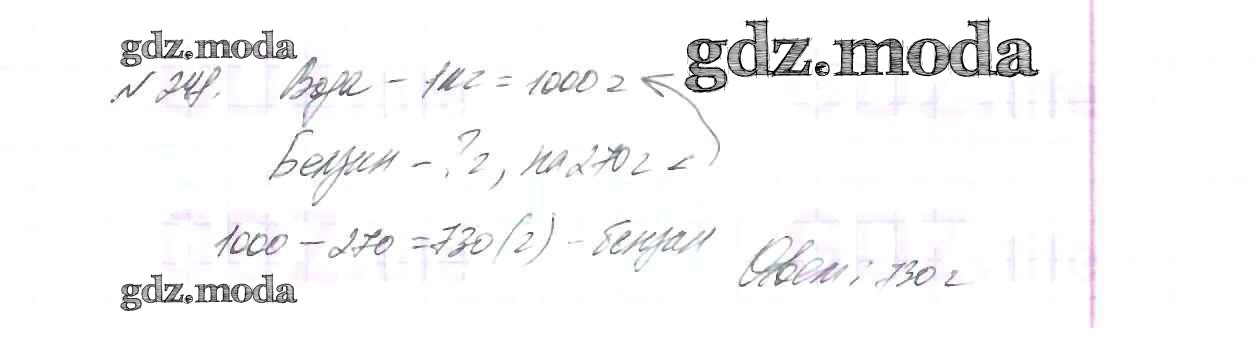 gdz.moda gdz.moda
Вода - 1кг = 1000 г
Бензин - ? г, на 270 г <
1000 - 270 = 730 (г) - бензин
Ответ: 730 г
gdz.moda